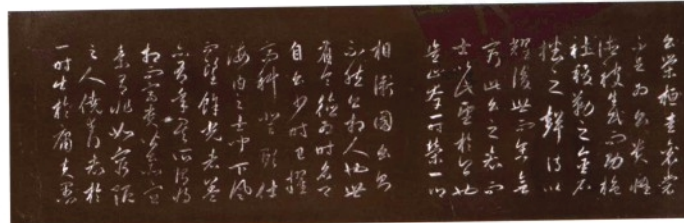 公榮桓圭袞裳
不足為公貴惟
德被生民而功施
社稷勒之金石
播之聲詩以
耀後世而垂無
窮此公之志而
士以此望於公也
豈止夸一時榮一
相衛國公則
不然公相人也世
有令德為時名卿
自公少時已擢
高科登顯仕
海內之士聞下風
而望餘光者蓋
亦有年矣所謂將
相而富貴皆公所宜
素有非如窮阨
之人僥幸得志於
一時出於庸夫愚